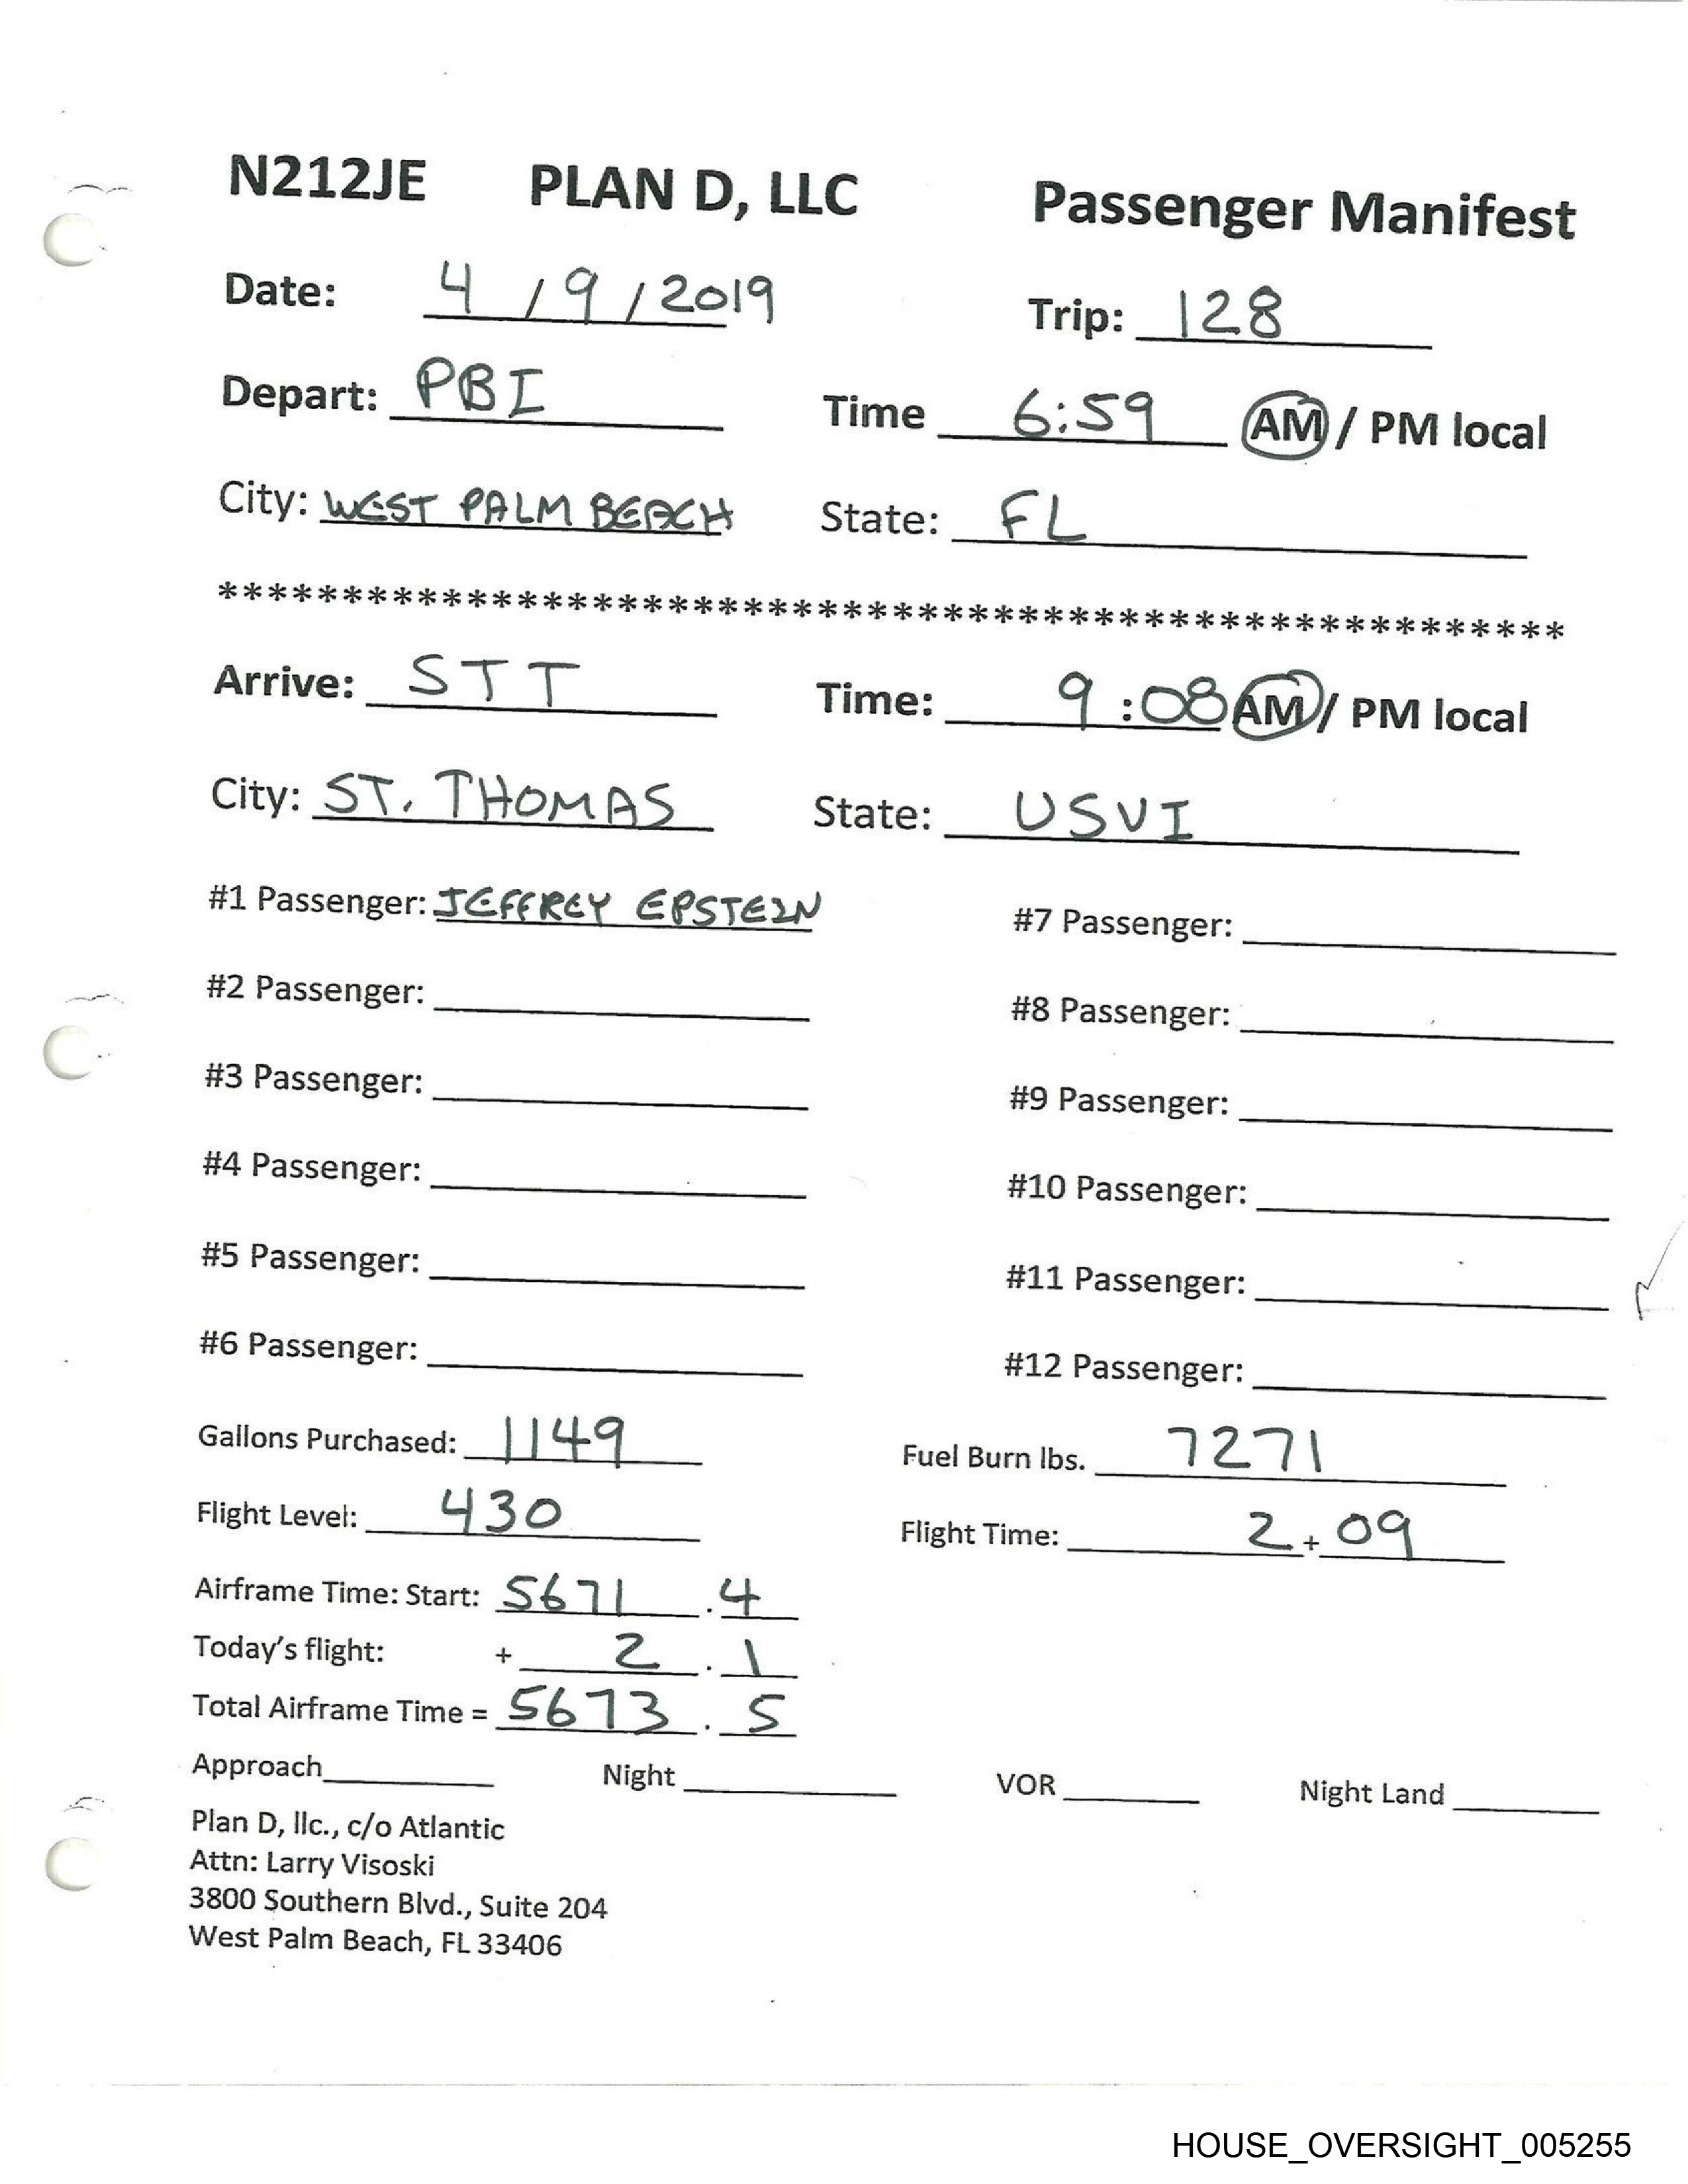 N212JE PLAN D, LLC Passenger Manifest
Date: 4 / 9 / 2019 Trip: 128
Depart: PBI Time 6:59 AM / PM local
City: WEST PALM BEACH State: FL
******************************************************
Arrive: STT Time: 9:08 AM / PM local
City: ST. THOMAS State: USVI
#1 Passenger: JEFFREY EPSTEIN #7 Passenger:
#2 Passenger: #8 Passenger:
#3 Passenger: #9 Passenger:
#4 Passenger: #10 Passenger:
#5 Passenger: #11 Passenger:
#6 Passenger: #12 Passenger:
Gallons Purchased: 1149 Fuel Burn lbs. 7271
Flight Level: 430 Flight Time: 2 + 09
Airframe Time: Start: 5671 . 4
Today's flight: + 2 . 1
Total Airframe Time = 5673 . 5
Approach Night VOR Night Land
Plan D, llc., c/o Atlantic
Attn: Larry Visoski
3800 Southern Blvd., Suite 204
West Palm Beach, FL 33406
HOUSE_OVERSIGHT_005255